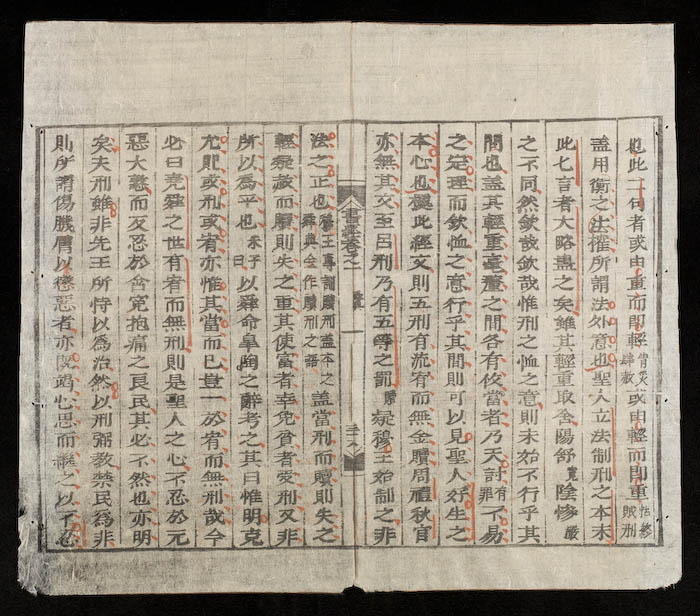 也此二句者或由重而即輕眚災肆赦或由輕而即重怙終賊刑
蓋用衡之法權所謂法外意也聖人立法制刑之本末
此七言者大略盡之矣雖其輕重取舍陽舒寬陰慘嚴
之不同然欽哉欽哉惟刑之恤之意則未始不行乎其
間也蓋其輕重毫釐之間各有攸當者乃天討有罪不易
之定理而欽恤之意行乎其間則可以見聖人好生之
本心也據此經文則五刑有流宥而無金贖周禮秋官
亦無其文至呂刑乃有五等之罰贖疑穆王始制之非
書經卷之一
法之正也穆王專訓贖刑蓋本之舜典金作贖刑之語蓋當刑而贖則失之
輕疑赦而贖則失之重其使富者幸免貧者受刑又非
所以爲平也朱子曰以舜命皐陶之辭考之其曰惟明克
允則或刑或宥亦惟其當而已豈一於宥而無刑哉今
必曰堯舜之世有宥而無刑則是聖人之心不忍於元
惡大憝而反忍於含冤抱痛之良民其必不然也亦明
矣夫刑雖非先王所恃以爲治然以刑弼教禁民爲非
則所謂傷肌膚以懲惡者亦既竭心思而繼之以不忍